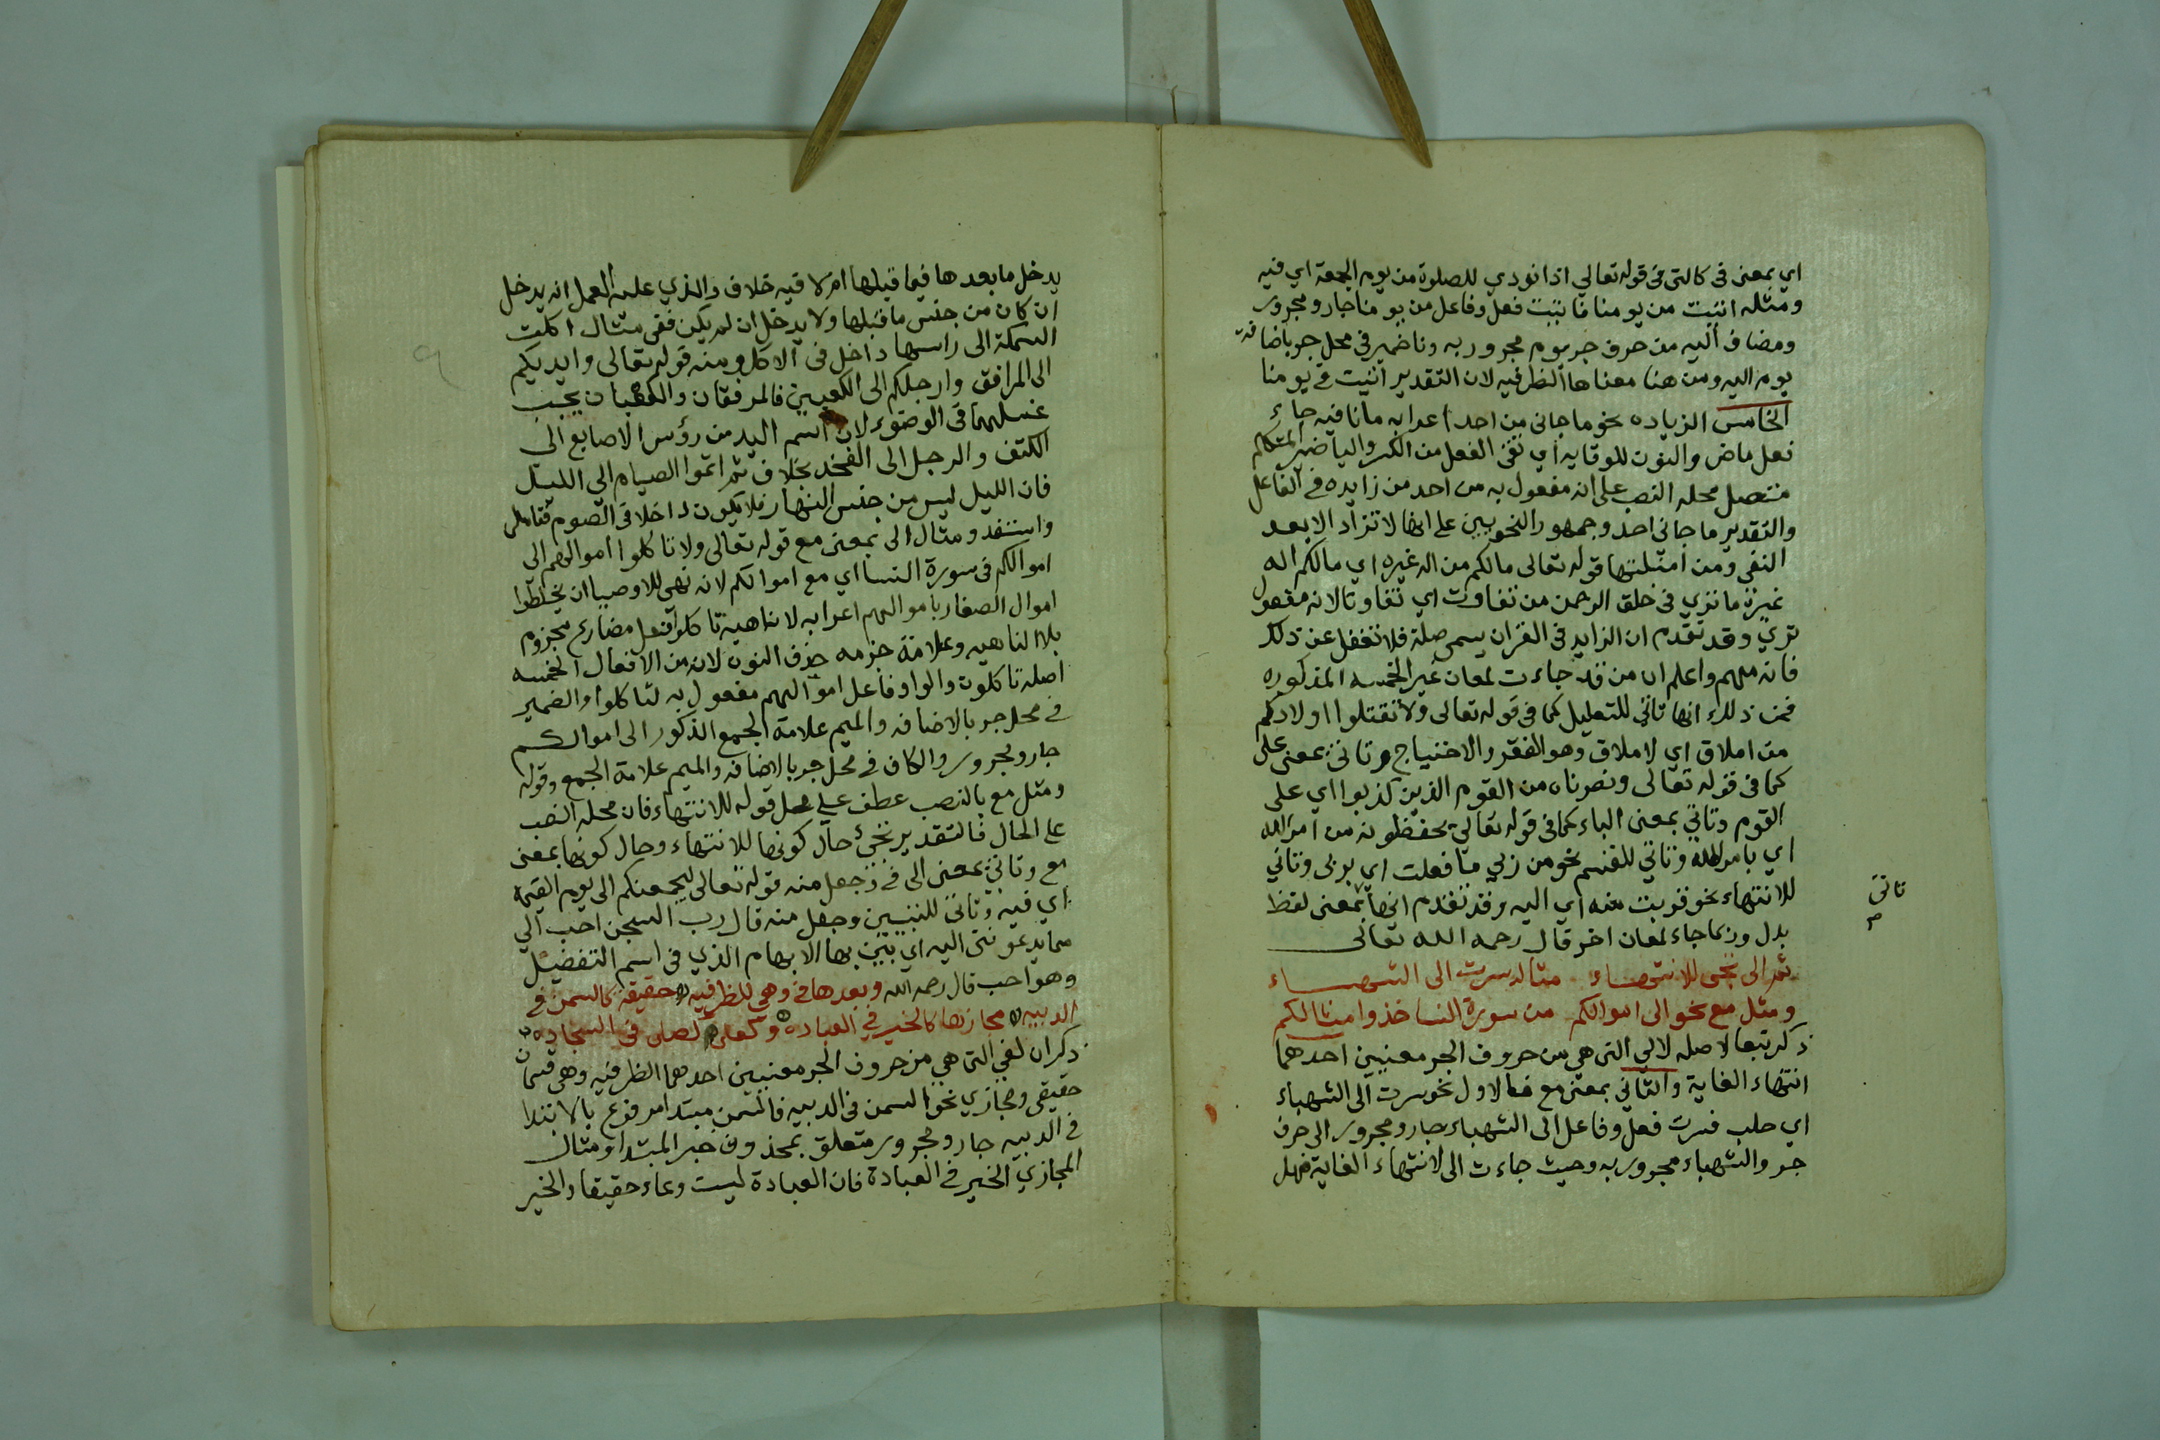 اي بمعنى في كالتي في قوله تعالي اذا نودي للصلوة من يوم الجمعة اي فيه
ومثله اتيت من يومنا فاتيت فعل وفاعل من يومنا جار ومجرور
ومضاف اليه من حرف جر يوم مجرور به ونا ضمير في محل جر باضافة
يوم اليه ومن هنا معناها الظرفيه لان التقدير اتيت في يومنا
الخامس الزياده نحو ما جاني من احد اعرابه ما نافيه جاء
فعل ماض والنون للوقايه اي تقي الفعل من الكسر واليا ضمير المتكلم
متصل محله النصب على انه مفعول به من احد من زايده في الفاعل
والتقدير ما جاني احد وجمهور النحويين على انها لا تزاد الا بعد
النفي ومن امثلتها قوله تعالى مالكم من اله غيره اي مالكم اله
غيره ما تري في خلق الرحمن من تفاوت اي تفاوتا لانه مفعول
تري وقد تقدم ان الزايد في القران يسمى صلة فلا تغفل عن ذلك
فانه مهم واعلم ان من قد جاءت لمعان غير الخمسه المذكوره
فمن ذلك انها تاتي للتعليل كما في قوله تعالى ولا تقتلوا اولادكم
من املاق اي لاملاق وهو الفقر والاحتياج وتاتي بمعنى على
كما في قوله تعالى ونصرناه من القوم الذين كذبوا اي على
القوم وتاتي بمعنى الباء كما في قوله تعالى يحفظونه من امر الله
اي بامر الله وتاتي للقسم نحو من ربي ما فعلت اي بربي وتاتي
للانتهاء نحو قربت منه اي اليه وقد تقدم انها بمعنى لفظ
تاتي
بدل وربما جاء لمعان اخر قال رحمه الله تعالى
ثم الى تجي للانتهاء مثاله سرت الى الشهباء
ومثل مع نحو الى اموالكم من سورة النسا خذوا مثالكم
ذكر تبعا لاصله لالي التي هي من حروف الجر معنيين احدهما
انتهاء الغاية والثاني بمعنى مع فالاول نحو سرت الى الشهباء
اي حلب فسرت فعل وفاعل الى الشهباء جار ومجرور الى حرف
جر والشهباء مجرور به وحيث جاءت الى لانتهاء الغاية فهل
يدخل ما بعدها فيما قبلها ام لا فيه خلاف والذي عليه العمل انه يدخل
ان كان من جنس ما قبلها ولا يدخل ان لم يكن ففي مثال اكلت
السمكة الى راسها داخل في الاكل ومنه قوله تعالى وايديكم
الى المرافق وارجلكم الى الكعبين فالمرفقان والكعبان يجب
غسلهما في الوضوء لان اسم اليد من رؤس الاصابع الى
الكتف والرجل الى الفخذ بخلاف ثم اتموا الصيام الي الليل
فان الليل ليس من جنس النهار فلا يكون داخلا في الصوم فتامل
واستفد ومثال الى بمعنى مع قوله تعالى ولا تاكلوا اموالهم الى
اموالكم في سورة النسا اي مع اموالكم لانه نهي للاوصيا ان يخلطوا
اموال الصغار باموالهم اعرابه لا ناهيه تاكلوا فعل مضارع مجزوم
بلا الناهيه وعلامة جزمه حذف النون لانه من الافعال الخمسه
اصله تاكلون والواو فاعل اموالهم مفعول به لتاكلوا والضمير
في محل جر بالاضافه والميم علامة الجمع الذكور الى اموالكم
جار ومجرور والكاف في محل جر بالاضافه والميم علامة الجمع وقوله
ومثل مع بالنصب عطف علي محل قوله للانتهاء فان محله النصب
على الحال فالتقدير تجئ حال كونها للانتهاء وحال كونها بمعنى
مع وتاتي بمعنى الى في وجعل منه قوله تعالى ليجمعنكم الى يوم القيمة
اي فيه وتاتي للتبيين وجعل منه قال رب السجن احب الي
مما يدعونني اليه اي تبين بها الابهام الذي في اسم التفضيل
وهو احب قال رحمه الله وبعدها في وهي للظرفيه حقيقة كالسمن في
الدبيه مجازها كالخير في العباده وكعلى لصلى في السجاده
ذكر ان لفي التي هي من حروف الجر معنيين احدهما الظرفيه وهي قسمان
حقيقي ومجازي نحو السمن في الدبيه فالسمن مبتدا مرفوع بالابتدا
في الدبيه جار ومجرور متعلق بمحذوف خبر المبتدا ومثال
المجازي الخير في العبادة فان العبادة ليست وعاء حقيقا والخير